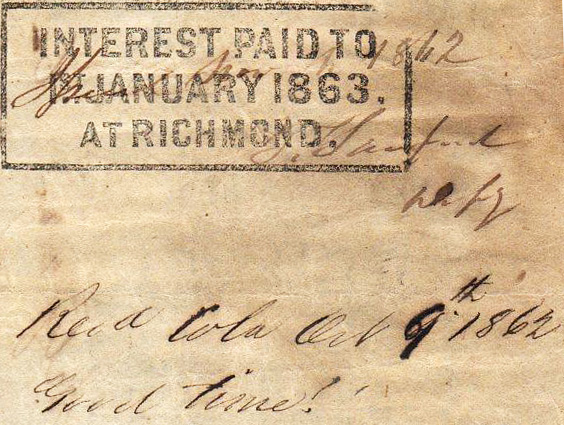 INTEREST PAID TO
1st JANUARY 1863.
AT RICHMOND.
1862
Recd Cola Oct 9th 1862
Good time!